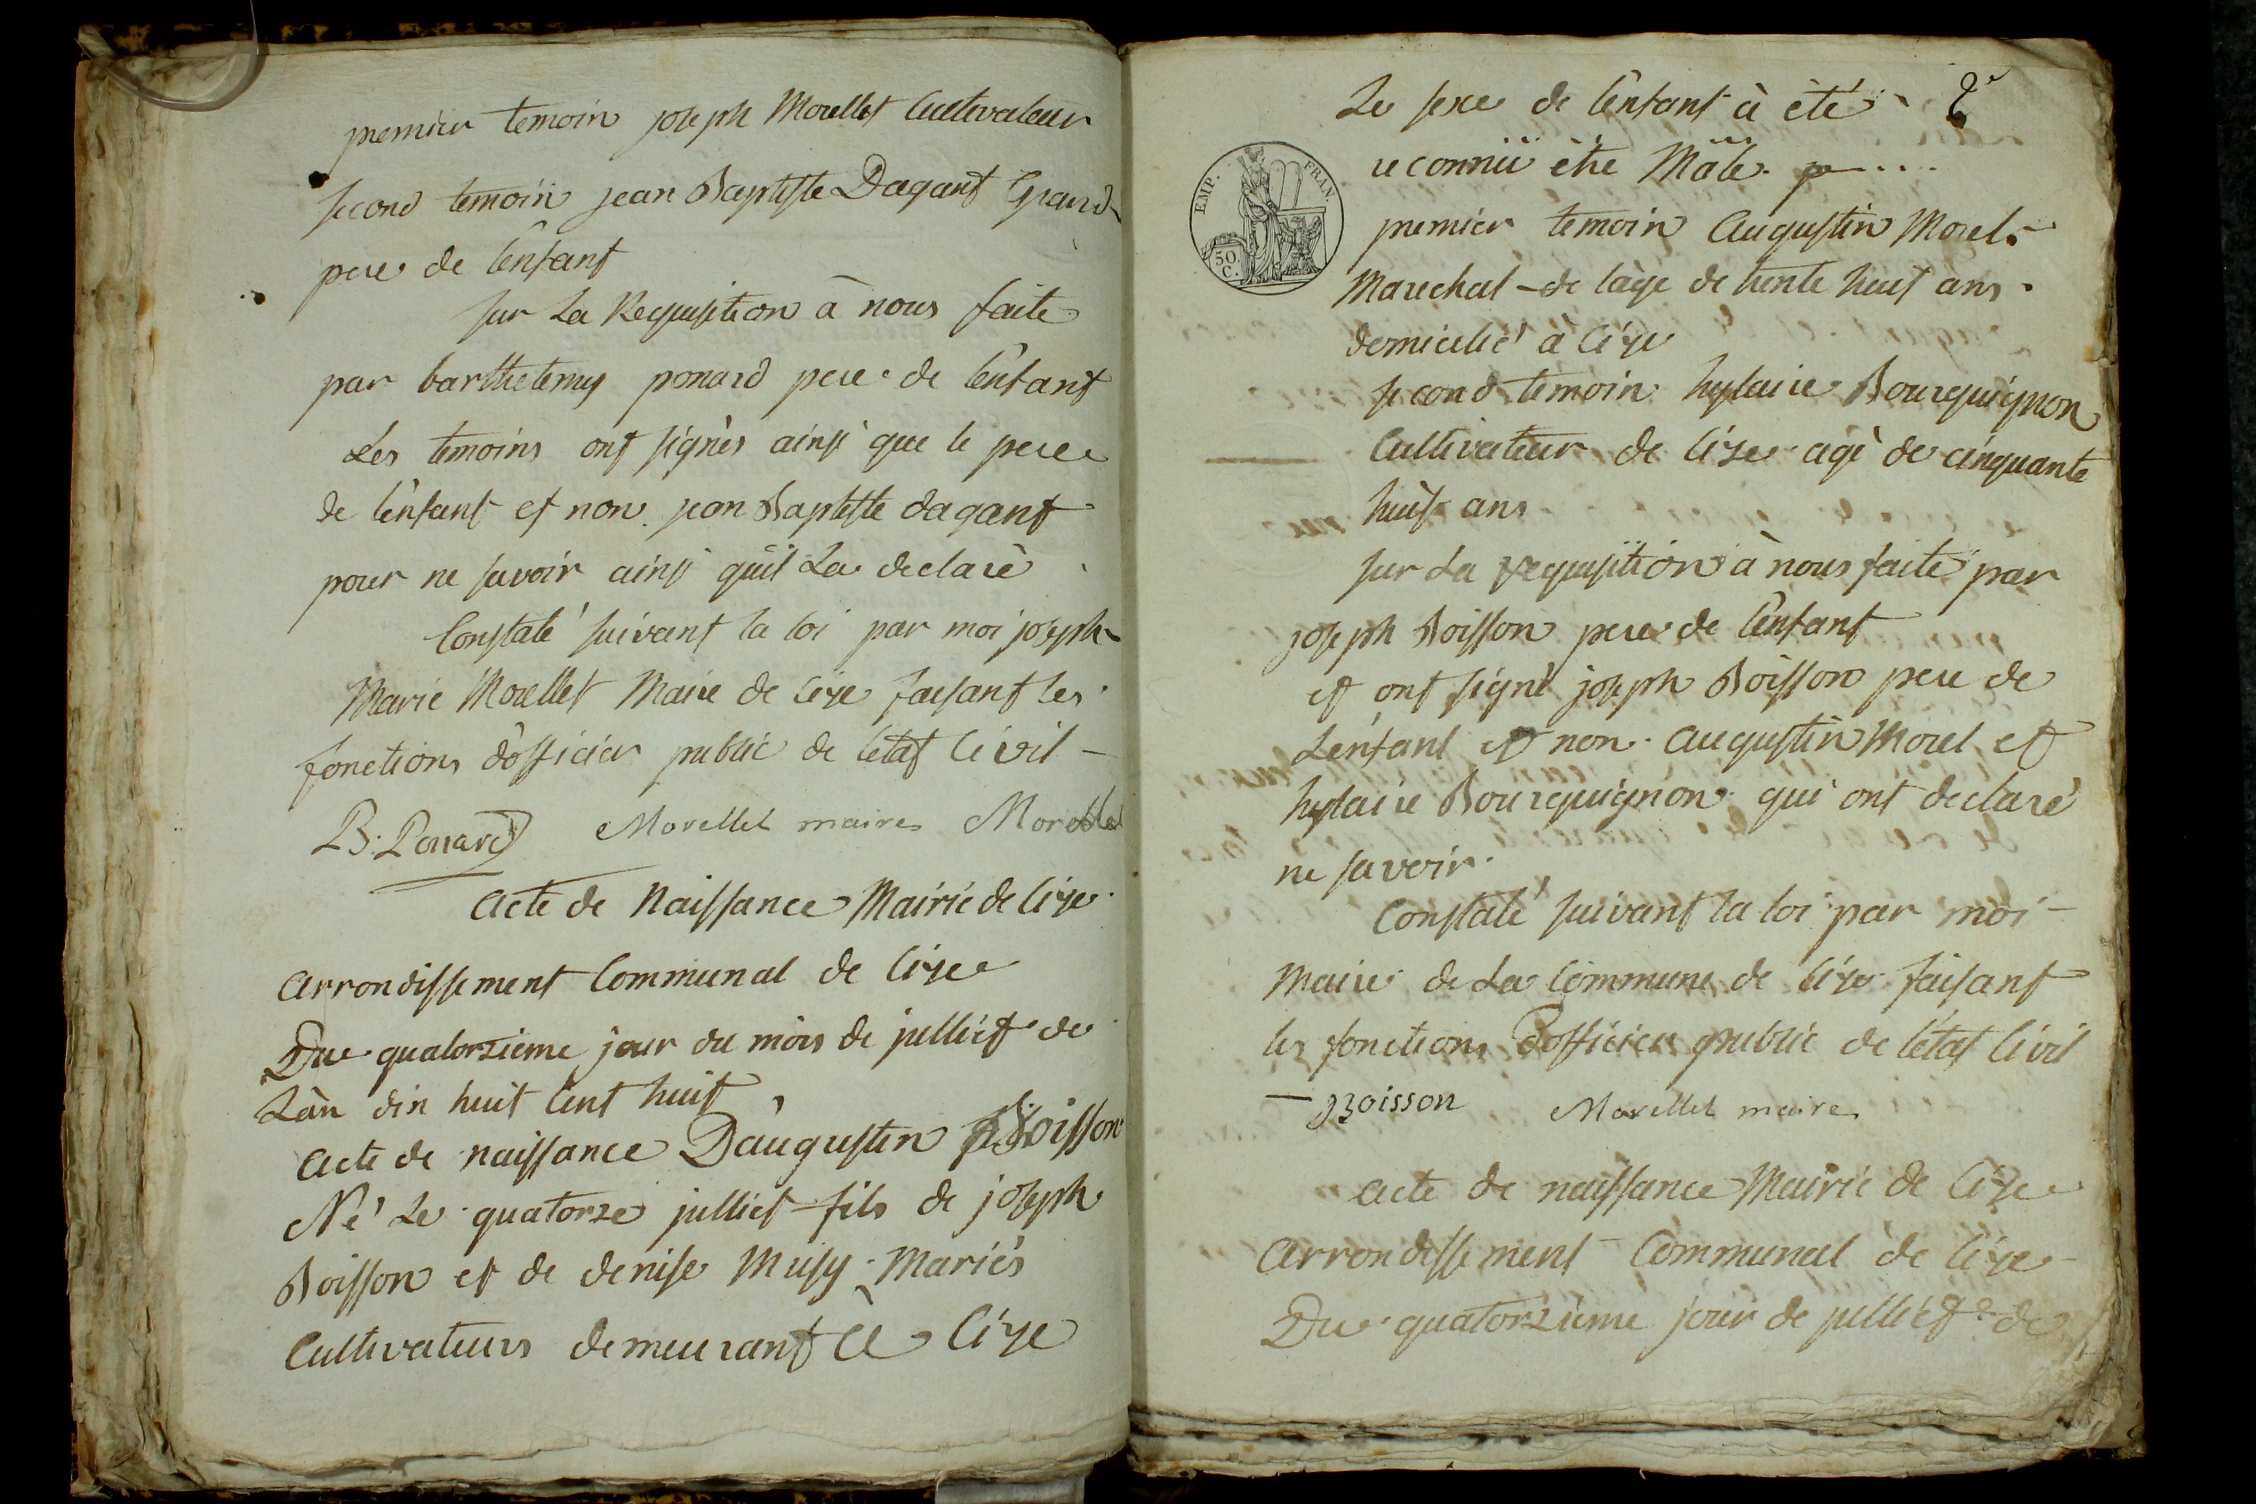 premier temoin joseph Morellet Cultivateur
second temoin jean Baptiste Dagant Grand
pere de l'enfant
sur La Requisition à nous faite
par barthelemy ponard pere de l'enfant
Les temoins ont signés ainsi que le pere
de l'enfant et non jean Baptiste dagant
pour ne savoir ainsi qu'il La declaré
Constaté suivant la loi par moi joseph
Marie Morellet Maire de Cize faisant les
fonctions d'officier public de l'etat Civil -
B. Ponard Morellet maire Morellet
acte de Naissance Mairie de Cize
arrondissement Communal de Cize
Du quatorzieme jour du mois de jullief de
L'àn dix huit Cent huit
acte de naissance D'augustin Boisson
Né Le quatorze julliet fils de joseph
Boisson et de denise Musy Mariés
Cultivateurs demeurant A Cize
Le sexe de l'enfant à été
reconnü étre Mâle
EMP. FRAN.
50 C.
premier temoin Augustin Morel
Marechal - de l'àge de trente huit ans
domicilié à Cize
second temoin hylaire Bourguignon
Cultivateur de Cize agé de cinquante
huit ans
sur La requisition à nous faite par
joseph Boisson pere de l'enfant
et ont signé joseph Boisson pere de
L'enfant et non Augustin Morel et
hylaire Bourguignon qui ont declaré
ne savoir
Constaté suivant la loi par moi -
Maire de La Commune de Cize faisant
les fonctions D'officier public de l'état Civil
- Boisson Morellet maire
acte de naissance Mairie de Cize
arrondissement Communal de Cize
Du quatorzieme jour de jullief de